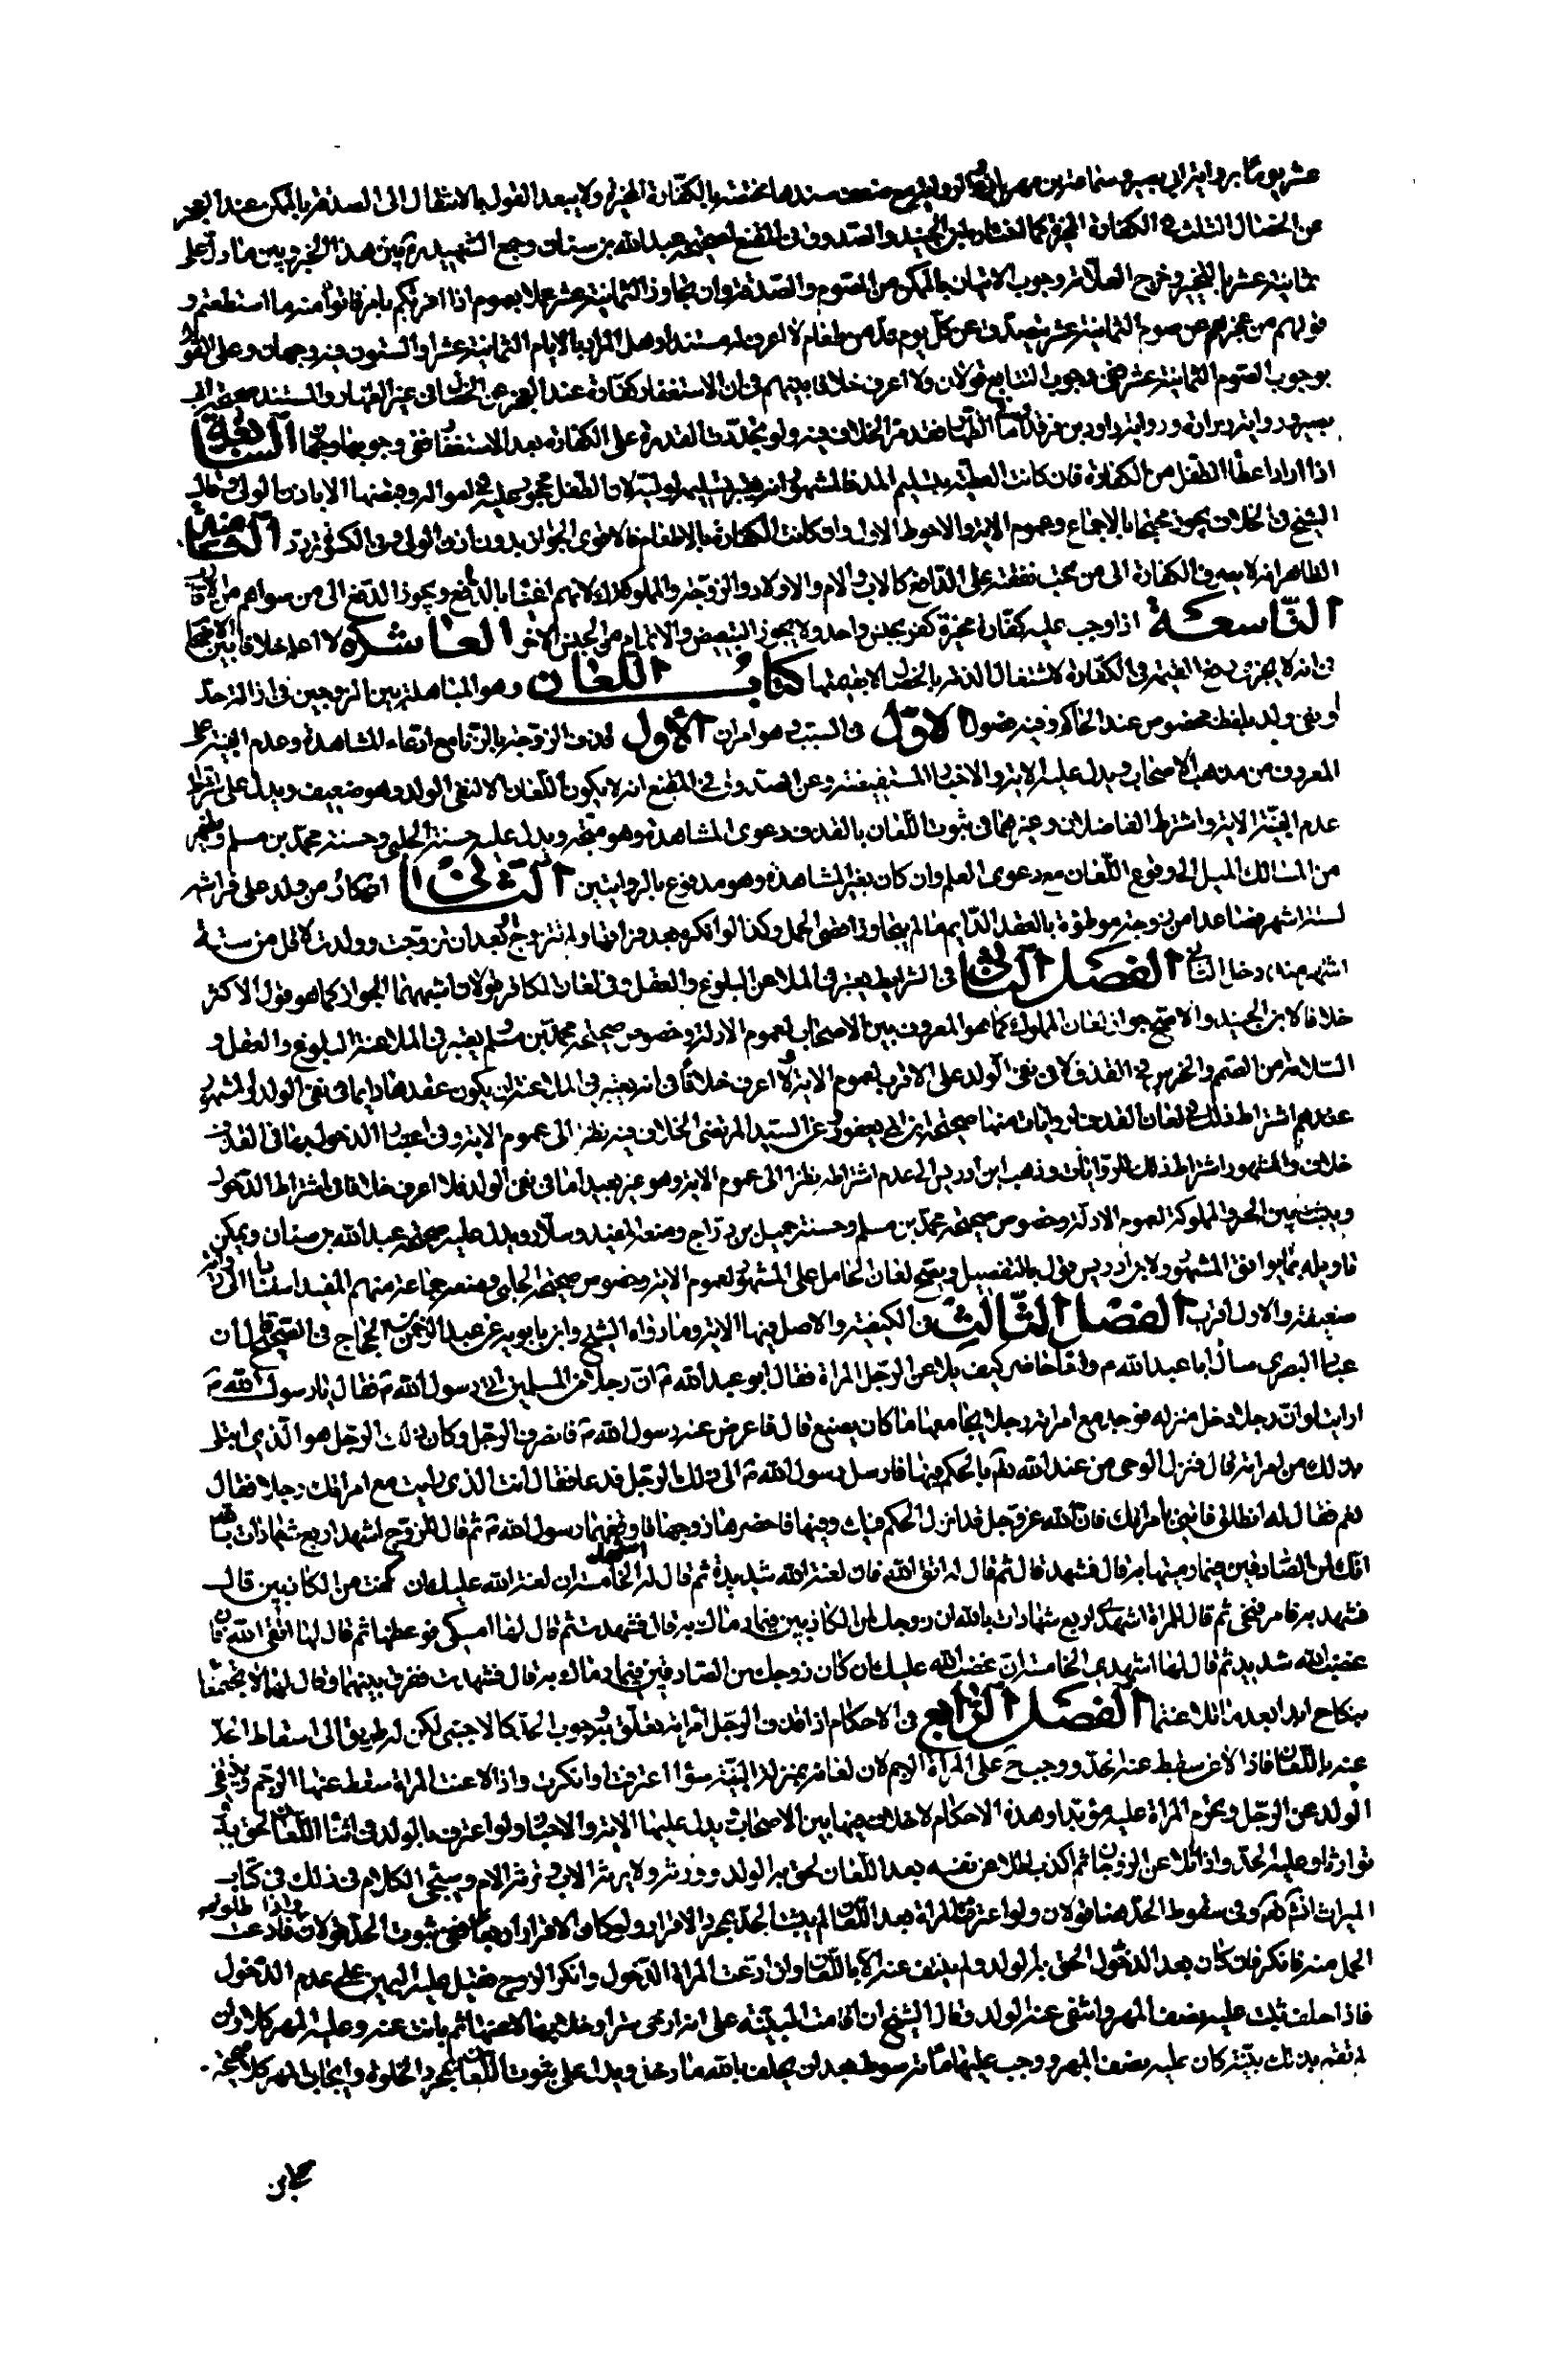 عشر يوما برواية ابي بصير وسماعة بن مهران والرواية مع ضعف سندها مختصة بالكفارة المخيرة ولا يبعد القول بالانتقال الى الصدقة بالممكن عند العجز
عن الخصال الثلث في الكفارة المخيرة كما اختاره ابن الجنيد والصدوق في المقنع لصحيحة عبد الله بن سنان وجمع الشهيد ره بين هذا الخبر وبين ما دل على
ثمانية عشر بالتخيير وخرج العلامة وجوب الاتيان بالممكن من الصوم والصدقة وان تجاوز الثمانية عشر عملا بعموم اذا امرتكم بامر فاتوا منه ما استطعتم و
قولهم من عجز عن صوم الثمانية عشر يتصدق عن كل يوم مد من طعام لا اعرف له مستندا وهل المراد بالايام الثمانية عشر او الستون فيه وجهان وعلى القول
بوجوب الصوم الثمانية عشر ففي وجوب التتابع قولان ولا اعرف خلافا بينهم في ان الاستغفار كفارة عند العجز عن الخصال في غير الظهار والمستند صحيحة ابي
بصير ورواية زرارة ورواية داود بن فرقد اما الظهار فقد مر الخلاف فيه ولو تجددت القدرة على الكفارة بعد الاستغفار ففي وجوبها وجهان السابعة
اذا اراد اعطاء الطفل من الكفارة فان كانت العطية بتسليم المد فالمشهور انه يعتبر تسليمه لوليه لان الطفل محجور عليه في امواله وقبضها الا باذن الولي وقال
الشيخ في الخلاف يجوز محتجا بالاجماع وعموم الاية والاحوط الاول وان كانت الكفارة بالاطعام فالاقوى الجواز بدون اذن الولي وفي الكسوة تردد الثامنة
الظاهر انه لا يصرف الكفارة الى من يجب نفقته على الدافع كالاب والام والاولاد والزوجة والمملوك لانهم اغنياء بالدافع ويجوز الدفع الى من سواهم من الاقارب
التاسعة اذا وجب عليه كفارة مخيرة كفر بجنس واحد ولا يجوز التبعيض والاتمام من الجنس الاخر العاشرة لا اعلم خلافا بين الاصحاب
في انه لا يجزي دفع القيمة في الكفارة لاشتغال الذمة بالخصال لا بقيمتها كتاب اللعان وهو المباهلة بين الزوجين في ازالة حد
او نفي ولد بلفظ مخصوص عند الحاكم وفيه فصول الاول في السبب وهو امران الاول قذف الزوجة بالزنا مع ادعاء المشاهدة وعدم البينة على
المعروف من مذهب الاصحاب ويدل عليه الاية والاخبار المستفيضة وعن الصدوق في المقنع انه لا يكون اللعان الا لنفي الولد وهو ضعيف ويدل على اشتراط
عدم البينة الاية واشترط الفاضلان وغيرهما في ثبوت اللعان بالقذف دعوى المشاهدة وهو متجه ويدل عليه حسنة الحلبي وحسنة محمد بن مسلم ويظهر
من المسالك الميل الى وقوع اللعان مع دعوى العلم وان كان بغير المشاهدة وهو مدفوع بالروايتين الثاني انكار من ولد على فراشه
لستة اشهر فصاعدا من زوجة موطوءة بالعقد الدايم ما لم يتجاوز اقصى الحمل وكذا لو انكره بعد فراقها ولم تتزوج او بعد ان تزوجت وولدت لاقل من ستة
اشهر منذ دخل الثاني الفصل الثاني في الشرايط يعتبر في الملاعن البلوغ والعقل وفي لعان الكافر قولان اشبههما الجواز كما هو قول الاكثر
خلافا لابن الجنيد والاصح جواز لعان المملوك كما هو المعروف بين الاصحاب لعموم الادلة وخصوص صحيحة محمد بن مسلم يعتبر في الملاعنة البلوغ والعقل و
السلامة من الصمم والخرس في القذف لا في نفي الولد على الاقرب لعموم الاية ولا اعرف خلافا في انه يعتبر في الملاعنة ان يكون عقدها دايما في نفي الولد والمشهور
عندهم اشتراط ذلك في لعان القذف لروايات منها صحيحة ابن ابي يعفور وعن السيد المرتضى الخلاف فيه نظرا الى عموم الاية وفي اعتبار الدخول بها في القذف
خلاف والمشهور اشتراط ذلك للروايات وذهب ابن ادريس الى عدم اشتراطه نظرا الى عموم الاية وهو غير بعيد اما في نفي الولد فلا اعرف خلافا في اشتراط الدخول
ويثبت بين الحر والمملوكة لعموم الادلة وخصوص صحيحة محمد بن مسلم وحسنة جميل بن دراج ومنعه المفيد وسلار ويدل عليه صحيحة عبد الله بن سنان ويمكن
تاويله بما يوافق المشهور ولابن ادريس قول بالتفصيل ويصح لعان الحامل على المشهور لعموم الاية وخصوص صحيحة الحلبي ومنعه جماعة منهم المفيد استنادا الى رواية
ضعيفة والاول اقرب الفصل الثالث في الكيفية والاصل فيها الاية وما رواه الشيخ وابن بابويه عن عبد الرحمن بن الحجاج في الصحيح قال ان
عباد البصري سال ابا عبد الله ع وانا حاضر كيف يلاعن الرجل المراة فقال ابو عبد الله ع ان رجلا من المسلمين اتى رسول الله ص فقال يا رسول الله ص
ارايت لو ان رجلا دخل منزله فوجد مع امراته رجلا يجامعها ما كان يصنع قال فاعرض عنه رسول الله ص فانصرف الرجل وكان ذلك الرجل هو الذي ابتلى
بذلك من امراته قال فنزل الوحي من عند الله تع بالحكم فيها فارسل رسول الله ص الى ذلك الرجل فدعاه فقال انت الذي رايت مع امراتك رجلا فقال
نعم فقال له انطلق فائتني بامراتك فان الله عز وجل قد انزل الحكم فيك وفيها فاحضرها زوجها فاوقفها رسول الله ص ثم قال للزوج اشهد اربع شهادات بالله
انك لمن الصادقين فيما رميتها به قال فشهد قال ثم قال له اتق الله فان لعنة الله شديدة ثم قال له اشهد الخامسة ان لعنة الله عليك ان كنت من الكاذبين قال
فشهد به فامر فنحي ثم قال للمراة اشهدي اربع شهادات بالله ان زوجك لمن الكاذبين فيما رماك به قال فشهدت ثم قال لها امسكي فوعظها ثم قال لها اتقي الله فان
غضب الله شديد ثم قال لها اشهدي الخامسة ان غضب الله عليك ان كان زوجك من الصادقين فيما رماك به قال فشهدت ففرق بينهما وقال لهما لا تجتمعا
بنكاح ابدا بعد ما تلاعنتما الفصل الرابع في الاحكام اذا قذف الرجل امراته تعلق به وجوب الحد كالاجنبي لكن له طريق الى اسقاط الحد
عنه باللعان فاذا لاعن سقط عنه الحد ووجب ح على المراة الرجم لان لعانه بمنزلة البينة سواء اعترفت او انكرت واذا لاعنت المراة سقط عنها الرجم وينتفي
الولد عن الرجل وتحرم المراة عليه مؤبدا وهذه الاحكام لا خلاف فيها بين الاصحاب ويدل عليها الاية والاخبار ولو اعترف بالولد في اثناء اللعان لحق به
توارثا وعليه الحد واذا تلاعن الزوجان ثم اكذب الملاعن نفسه بعد اللعان لحق به الولد وورثه ولا يرثه الاب وترثه الام وسيجئ الكلام في ذلك في كتاب
الميراث انشاءالله تع وفي سقوط الحد هنا قولان ولو اعترفت المراة بعد اللعان لم يثبت الحد بمجرد الاقرار ولو كان الاقرار اربعا ففي ثبوت الحد قولان واذا طلق فادعت
الحمل منه فانكر فان كان بعد الدخول الحق به الولد ولم ينتف عنه الا باللعان وان ادعت المراة الدخول وانكر الزوج فقيل عليه اليمين على عدم الدخول
فاذا حلف ثبت عليه نصف المهر وانتفى عنه الولد وقال الشيخ ان اقامت البينة على انه ارخى سترا وخلا بها لاعنها ثم بانت عنه وعليه المهر كلا وان
لم تقم بذلك بينة كان عليه نصف المهر ووجب عليها مائة سوط بعد ان يحلف بالله ما دخل ويدل على ثبوت اللعان بمجرد الخلوة وايجاب المهر كلا صحيحة
علي بن